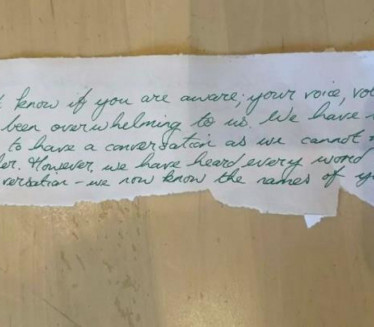 know if you are aware; your voice, vo
been overwhelming to us. We have
to have a conversation as we cannot
er. However, we have heard every word
versation - we now know the names of